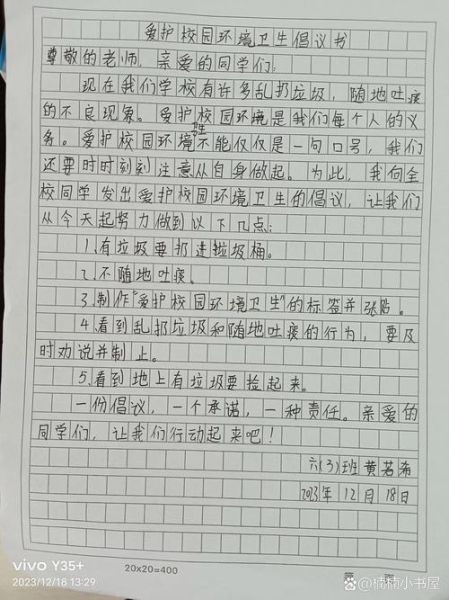 爱护校园环境卫生倡议书
尊敬的老师,亲爱的同学们:
现在我们学校有许多乱扔垃圾,随地吐痰
的不良现象。爱护校园环境是我们每个人的义
务。爱护校园环境卫生不能仅仅是一句口号,我们
还要时时刻刻注意从自身做起。为此,我向全
校同学发出爱护校园环境卫生的倡议,让我们
从今天起努力做到以下几点:
1.有垃圾要扔进垃圾桶。
2.不随地吐痰。
3.制作“爱护校园环境卫生”的标签并张贴。
4.看到乱扔垃圾和随地吐痰的行为,要及
时劝说并制止。
5.看到地上有垃圾要捡起来。
一份倡议,一个承诺,一种责任。亲爱的
同学们,让我们行动起来吧!
六(3)班 黄若希
2023年12月18日
vivo Y35+
2023/12/18 13:29
20×20=400